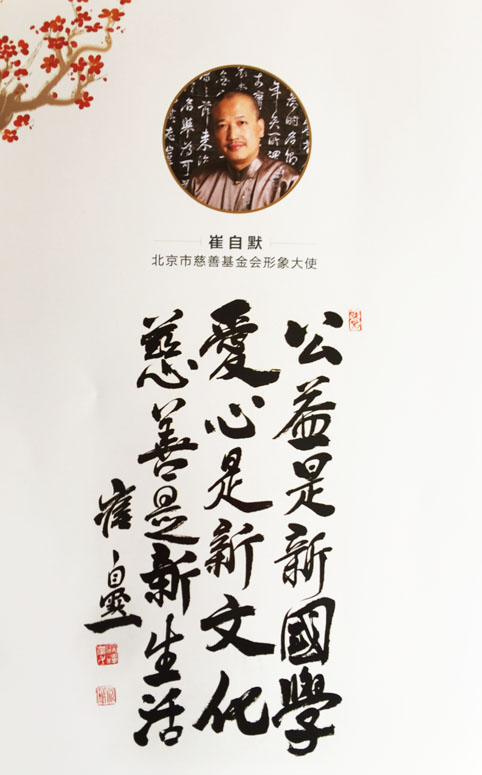 崔自默
北京市慈善基金会形象大使
公益是新國學
愛心是新文化
慈善是新生活
崔自默